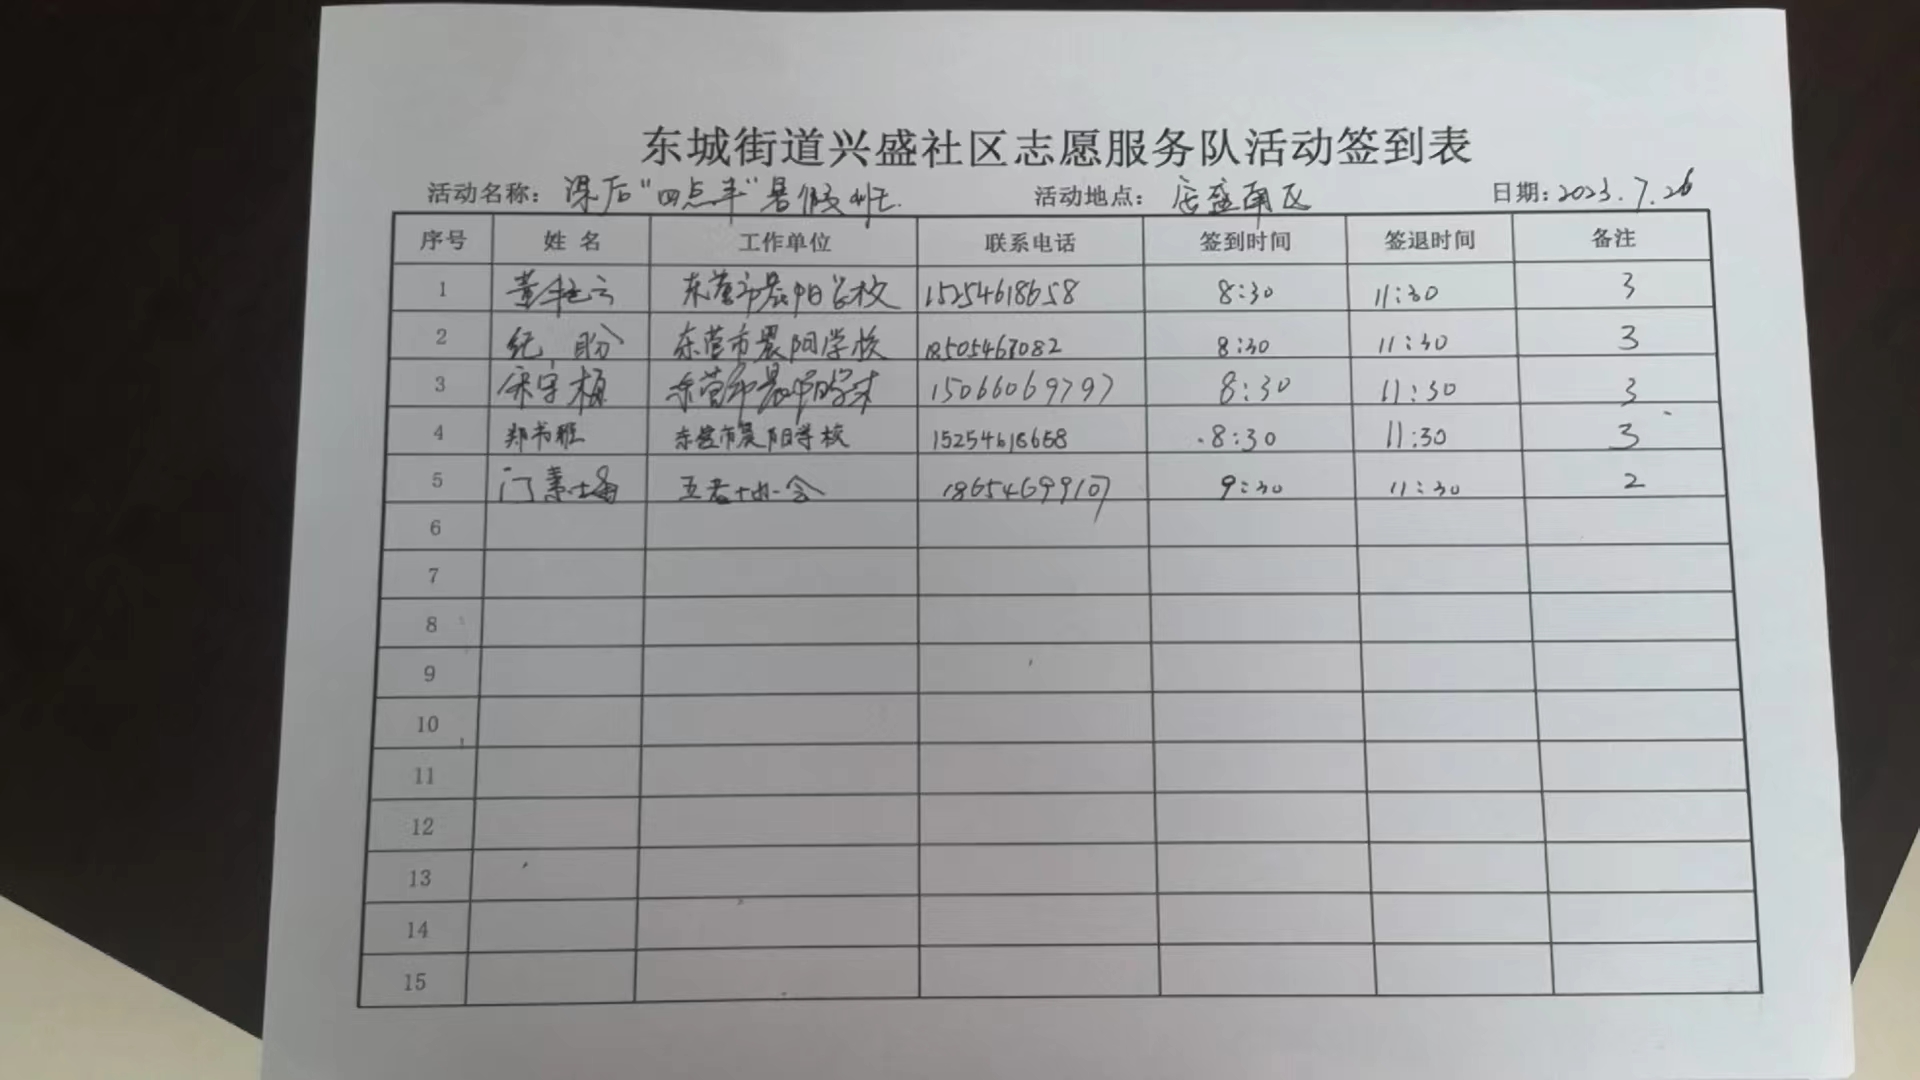 东城街道兴盛社区志愿服务队活动签到表
活动名称：课后“四点半”暑假班. 活动地点：盛南区 日期：2023.7.26
序号 姓名 工作单位 联系电话 签到时间 签退时间 备注
1 董 云 东营市晨阳学校 15254618658 8:30 11:30 3
2 纪盼 东营市晨阳学校 18505467082 8:30 11:30 3
3 宋宇桓 东营市晨阳学校 15066069797 8:30 11:30 3
4 郑书雅 东营市晨阳学校 15254618658 8:30 11:30 3
5 门 五老协会 18654699107 9:30 11:30 2
6
7
8
9
10
11
12
13
14
15